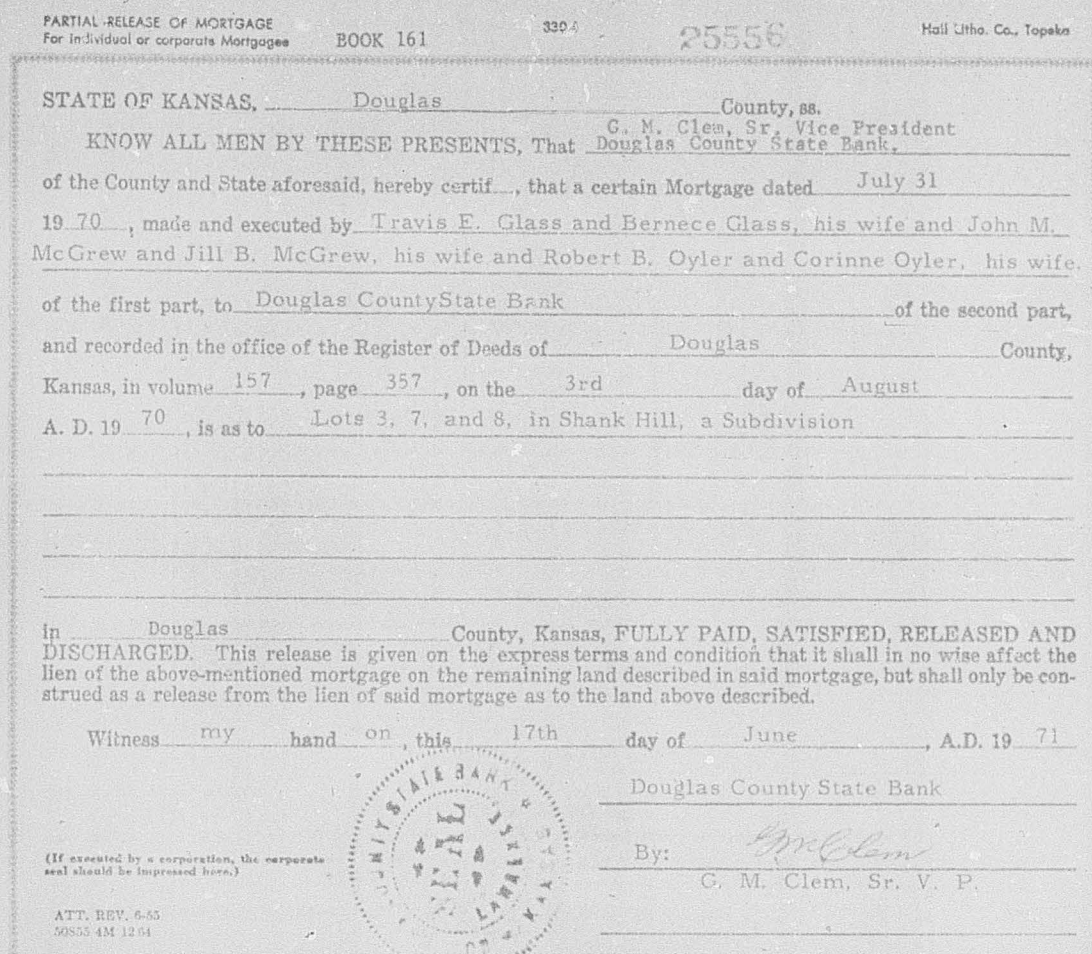 PARTIAL RELEASE OF MORTGAGE
For Individual or corporate Mortgagee BOOK 161 25556 Hall Litho. Co., Topeka
STATE OF KANSAS, Douglas County, ss.
G. M. Clem, Sr. Vice President
KNOW ALL MEN BY THESE PRESENTS, That Douglas County State Bank,
of the County and State aforesaid, hereby certif , that a certain Mortgage dated July 31
19 70 , made and executed by Travis E. Glass and Bernece Glass, his wife and John M.
McGrew and Jill B. McGrew, his wife and Robert B. Oyler and Corinne Oyler, his wife,
of the first part, to Douglas CountyState Bank of the second part,
and recorded in the office of the Register of Deeds of Douglas County,
Kansas, in volume 157 , page 357 , on the 3rd day of August
A. D. 19 70 , is as to Lots 3, 7, and 8, in Shank Hill, a Subdivision
in Douglas County, Kansas, FULLY PAID, SATISFIED, RELEASED AND
DISCHARGED. This release is given on the express terms and condition that it shall in no wise affect the
lien of the above-mentioned mortgage on the remaining land described in said mortgage, but shall only be con-
strued as a release from the lien of said mortgage as to the land above described.
Witness my hand on , this 17th day of June , A.D. 19 71
STATE BANK
SEAL
Douglas County State Bank
(If executed by a corporation, the corporate
seal should be impressed here.)
By: G M Clem
G. M. Clem, Sr. V. P.
ATT. REV. 6-55
50855 4M 12 64